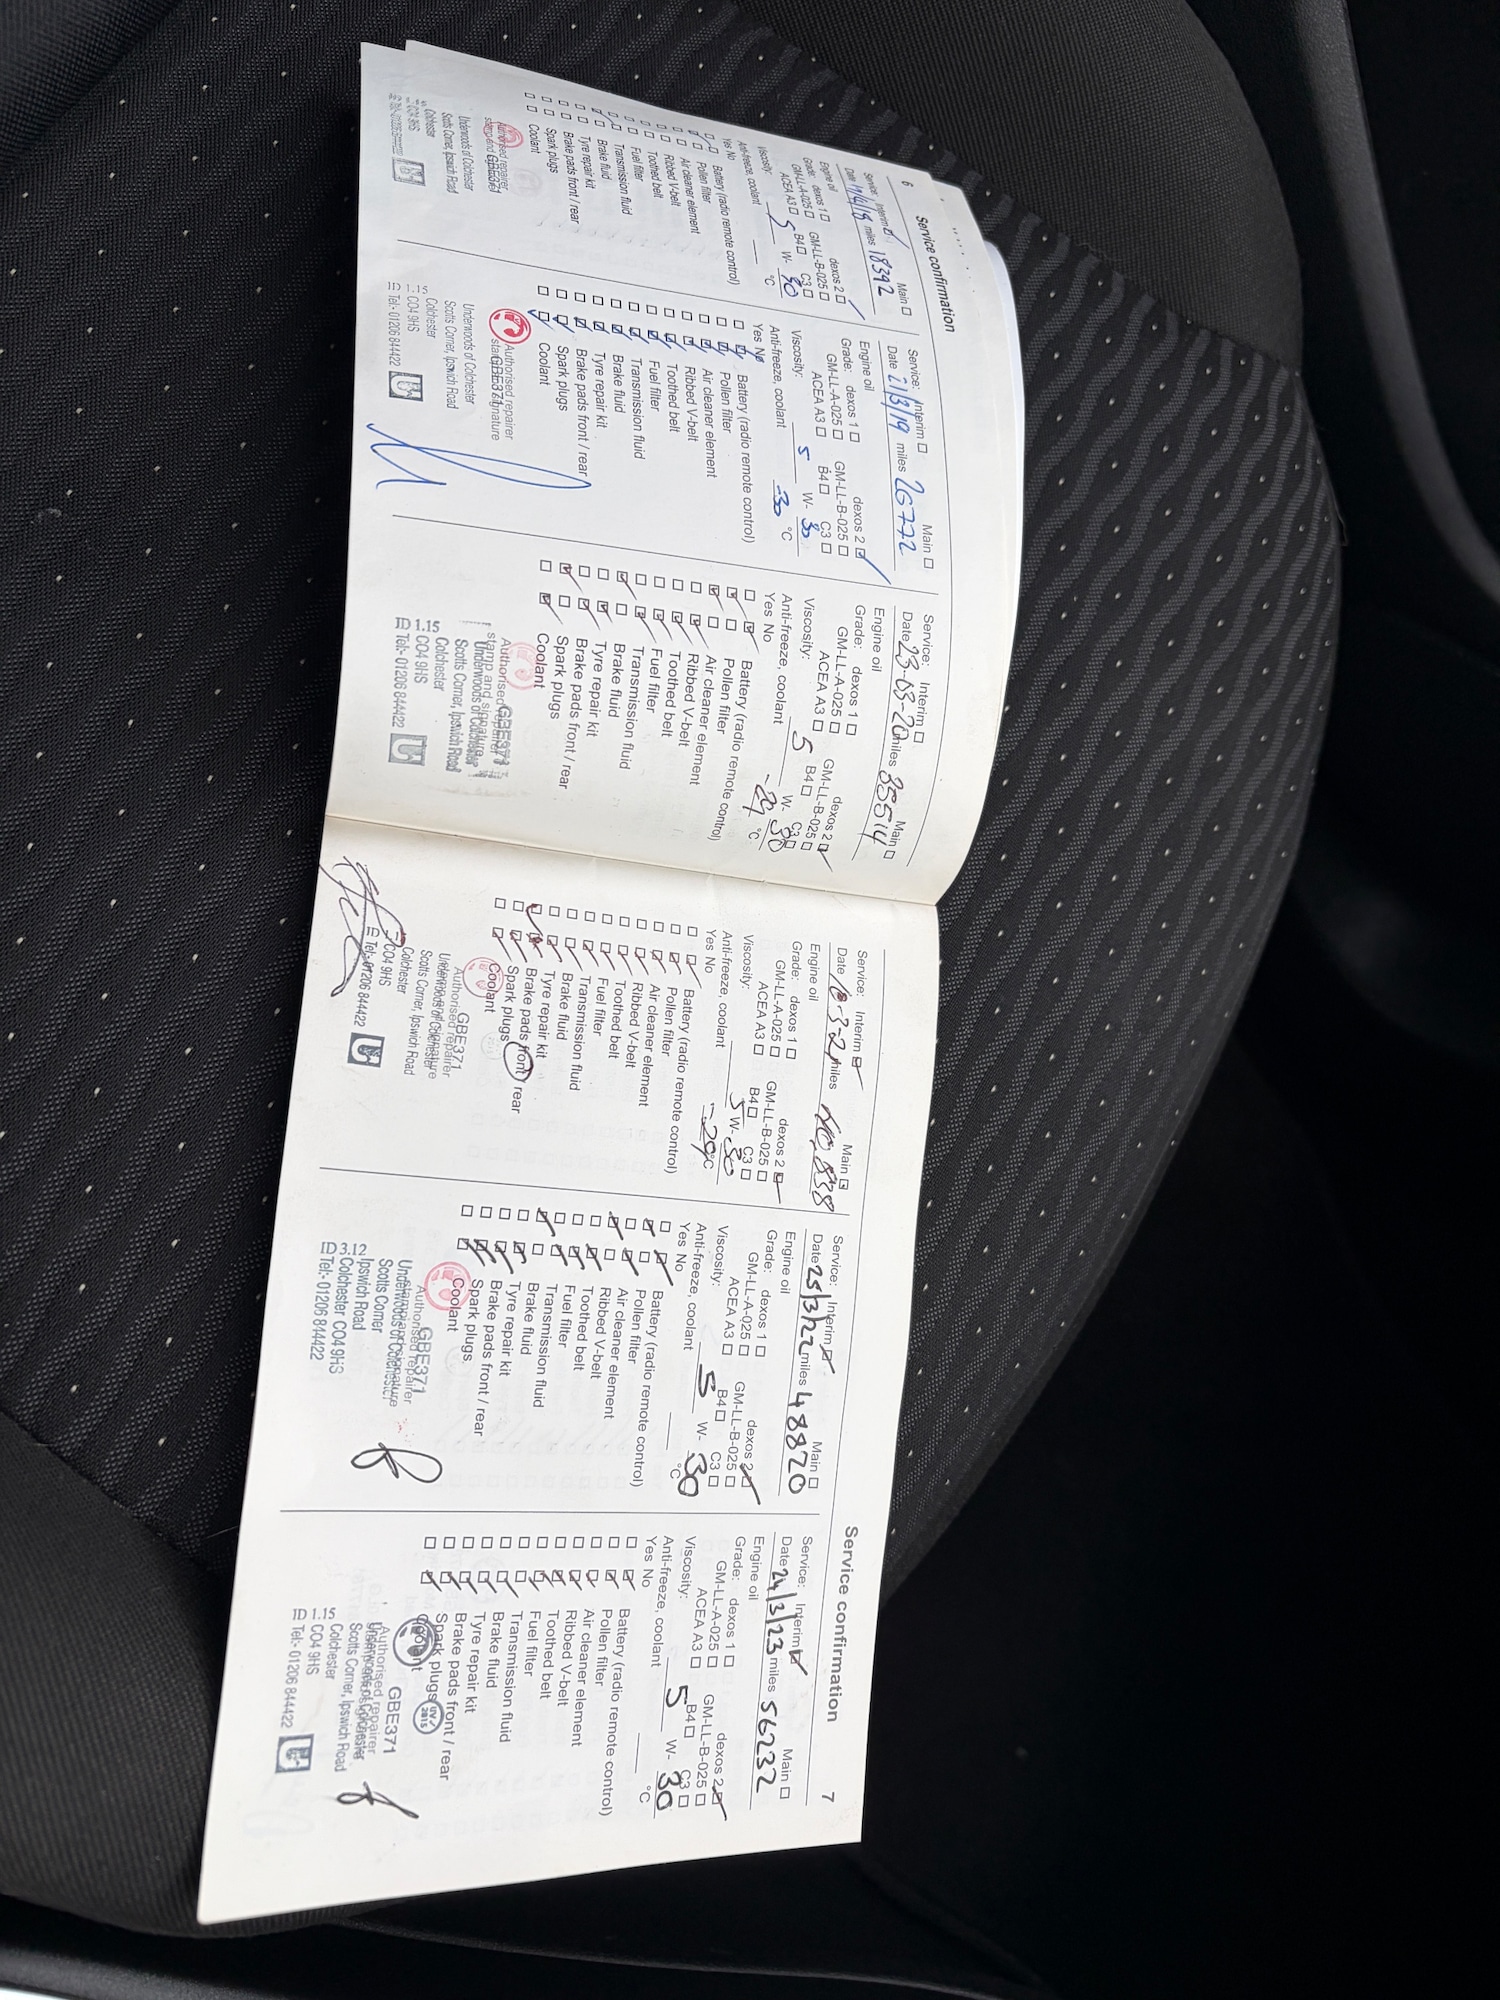 6
Service confirmation
Service: Interim ☑ Main ☐
miles 18392
Engine oil
Grade: dexos 1 ☐ dexos 2 ☐
GM-LL-A-025 ☐ GM-LL-B-025 ☐
ACEA A3 ☐ B4 ☐ C3 ☐
Viscosity: 5 W-
Anti-freeze, coolant °C
Yes No
Battery (radio remote control)
Pollen filter
Air cleaner element
Ribbed V-belt
Toothed belt
Fuel filter
Transmission fluid
Brake fluid
Tyre repair kit
Brake pads front / rear
Spark plugs
Coolant
Authorised repairer
Underwoods of Colchester
Scotts Corner, Ipswich Road
Colchester
Service: Interim ☐ Main ☐
Date 21/3/19 miles 26772
Engine oil
Grade: dexos 1 ☐ dexos 2 ☑
GM-LL-A-025 ☐ GM-LL-B-025 ☐
ACEA A3 ☐ B4 ☐ C3 ☐
Viscosity: 5 W- 30
Anti-freeze, coolant -30 °C
Yes No
☐ ☑ Battery (radio remote control)
☐ ☑ Pollen filter
☐ ☑ Air cleaner element
☐ ☑ Ribbed V-belt
☐ ☑ Toothed belt
☐ ☑ Fuel filter
☐ ☑ Transmission fluid
☐ ☑ Brake fluid
☐ ☑ Tyre repair kit
☐ ☑ Brake pads front / rear
☐ ☑ Spark plugs
☐ ☑ Coolant
Authorised repairer
GBE371
Underwoods of Colchester
Scotts Corner, Ipswich Road
Colchester
CO4 9HS
Tel:- 01206 844422
Service: Interim ☐ Main ☐
Date 23-03-20 miles 35514
Engine oil
Grade: dexos 1 ☐ dexos 2 ☑
GM-LL-A-025 ☐ GM-LL-B-025 ☐
ACEA A3 ☐ B4 ☐ C3 ☐
Viscosity: 5 W- 30
Anti-freeze, coolant -29 °C
Yes No
☐ ☑ Battery (radio remote control)
☑ ☐ Pollen filter
☑ ☐ Air cleaner element
☐ ☑ Ribbed V-belt
☐ ☑ Toothed belt
☐ ☑ Fuel filter
☐ ☑ Transmission fluid
☑ ☐ Brake fluid
☐ ☑ Tyre repair kit
☐ ☑ Brake pads front / rear
☑ ☐ Spark plugs
☐ ☑ Coolant
Authorised repairer
GBE371
stamp and signature
Underwoods of Colchester
Scotts Corner, Ipswich Road
Colchester
ID 1.15 CO4 9HS
Tel:- 01206 844422
Service: Interim ☑ Main ☐
Date 10-3-21 miles 40,838
Engine oil
Grade: dexos 1 ☐ dexos 2 ☑
GM-LL-A-025 ☐ GM-LL-B-025 ☐
ACEA A3 ☐ B4 ☐ C3 ☐
Viscosity: 5 W- 30
Anti-freeze, coolant -29 °C
Yes No
☐ ☑ Battery (radio remote control)
☐ ☑ Pollen filter
☐ ☑ Air cleaner element
☐ ☑ Ribbed V-belt
☐ ☑ Toothed belt
☐ ☑ Fuel filter
☐ ☑ Transmission fluid
☐ ☑ Brake fluid
☐ ☑ Tyre repair kit
☑ Brake pads front / rear
☐ ☑ Spark plugs
☐ ☑ Coolant
GBE371
Authorised repairer
Underwoods of Colchester
Scotts Corner, Ipswich Road
Colchester
CO4 9HS
Tel:- 01206 844422
Service confirmation
7
Service: Interim ☑ Main ☐
Date 25/3/22 miles 48820
Engine oil
Grade: dexos 1 ☐ dexos 2 ☑
GM-LL-A-025 ☐ GM-LL-B-025 ☐
ACEA A3 ☐ B4 ☐ C3 ☐
Viscosity: 5 W- 30
Anti-freeze, coolant °C
Yes No
☐ ☑ Battery (radio remote control)
☑ ☐ Pollen filter
☐ ☑ Air cleaner element
☑ ☐ Ribbed V-belt
☐ ☑ Toothed belt
☐ ☑ Fuel filter
☐ ☑ Transmission fluid
☑ ☐ Brake fluid
☐ ☑ Tyre repair kit
☐ ☑ Brake pads front / rear
☐ ☑ Spark plugs
☐ ☑ Coolant
GBE371
Authorised repairer
Underwoods of Colchester
Scotts Corner
Ipswich Road
ID 3.12 Colchester CO4 9HS
Tel:- 01206 844422
Service: Interim ☑ Main ☐
Date 24/3/23 miles 56232
Engine oil
Grade: dexos 1 ☐ dexos 2 ☑
GM-LL-A-025 ☐ GM-LL-B-025 ☐
ACEA A3 ☐ B4 ☐ C3 ☐
Viscosity: 5 W- 30
Anti-freeze, coolant °C
Yes No
☐ ☑ Battery (radio remote control)
☐ ☑ Pollen filter
☐ ☑ Air cleaner element
☐ ☑ Ribbed V-belt
☐ ☑ Toothed belt
☐ ☑ Fuel filter
☐ ☑ Transmission fluid
☐ ☑ Brake fluid
☐ ☑ Tyre repair kit
☐ ☑ Brake pads front / rear
☐ ☑ Spark plugs
☐ ☑ Coolant
GBE371
Authorised repairer
Underwoods of Colchester
Scotts Corner, Ipswich Road
Colchester
ID 1.15 CO4 9HS
Tel:- 01206 844422